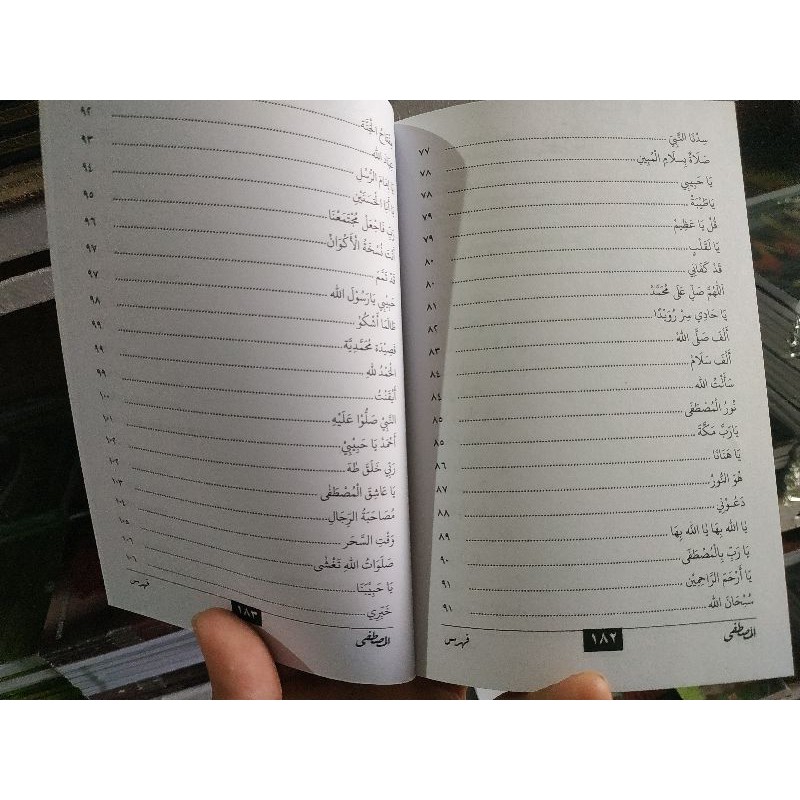 سِدْنَا النَّبِيّ ........ ٧٧
صَلَاةٌ بِسلَامِ الْمُبِيْنِ ........ ٧٨
يَا حَبِيبِي ........ ٧٨
يَاطَيْبَةُ ........ ٧٩
قُلْ يَا عَظِيْمُ ........ ٧٩
يَا لَقَلْبٍ ........ ٨٠
قَدْ كَفَانِي ........ ٨٠
اَللّٰهُمَّ صَلِّ عَلَى مُحَمَّدْ ........ ٨١
يَا حَادِي سِرْ رُوَيْدًا ........ ٨٢
أَلْفَ صَلَّى اللهُ ........ ٨٣
أَلْفَ سَلَامْ ........ ٨٤
سَأَلْتُ الله ........ ٨٤
نُورُ الْمُصْطَفَى ........ ٨٥
يَارَبَّ مَكَّةَ ........ ٨٥
يَا هَنَانَا ........ ٨٦
هُوَ النُّورُ ........ ٨٧
دَعُوْنِي ........ ٨٨
يَا الله بِهَا يَا الله بِهَا ........ ٨٩
يَا رَبِّ بِالْمُصْطَفَى ........ ٩٠
يَا أَرْحَمَ الرَّاحِمِيْن ........ ٩١
سُبْحَانَ الله ........ ٩١
المصطفى ١٨٢ فهرس
الْجَنَّة
الله
يَا إِمَامَ الرُّسْلِ ........ ٩٢
الْحَسَنَيْنِ ........ ٩٣
رَبِّ فَاجْعَلْ مُجْتَمَعْنَا ........ ٩٤
أَنْتَ نُسْخَةُ الْأَكْوَانْ ........ ٩٥
قَدْ تَمَّمَ ........ ٩٦
حَبِيْبِي يَارَسُوْلَ الله ........ ٩٧
طَالَمَا أَشْكُوْ ........ ٩٧
قَصِيْدَة مُحَمَّدِيَّة ........ ٩٨
الْحَمْدُ لِلهِ ........ ٩٩
أَيْقَنْتُ ........ ٩٩
النَّبِيْ صَلُّوْا عَلَيْهِ ........ ١٠٠
أَحْمَدْ يَا حَبِيْبِيْ ........ ١٠١
رَبِّي خَلَقْ طٰهَ ........ ١٠٢
يَا عَاشِقَ الْمُصْطَفَى ........ ١٠٢
مُصَاحَبَةُ الرِّجَالِ ........ ١٠٣
وَقْتِ السَّحَر ........ ١٠٤
صَلَوَاتُ اللهِ تَغْشَى ........ ١٠٥
يَا حَبِيْبَنَا ........ ١٠٦
خَبِّرِي ........ ١٠٦
المصطفى ١٨٣ فهرس